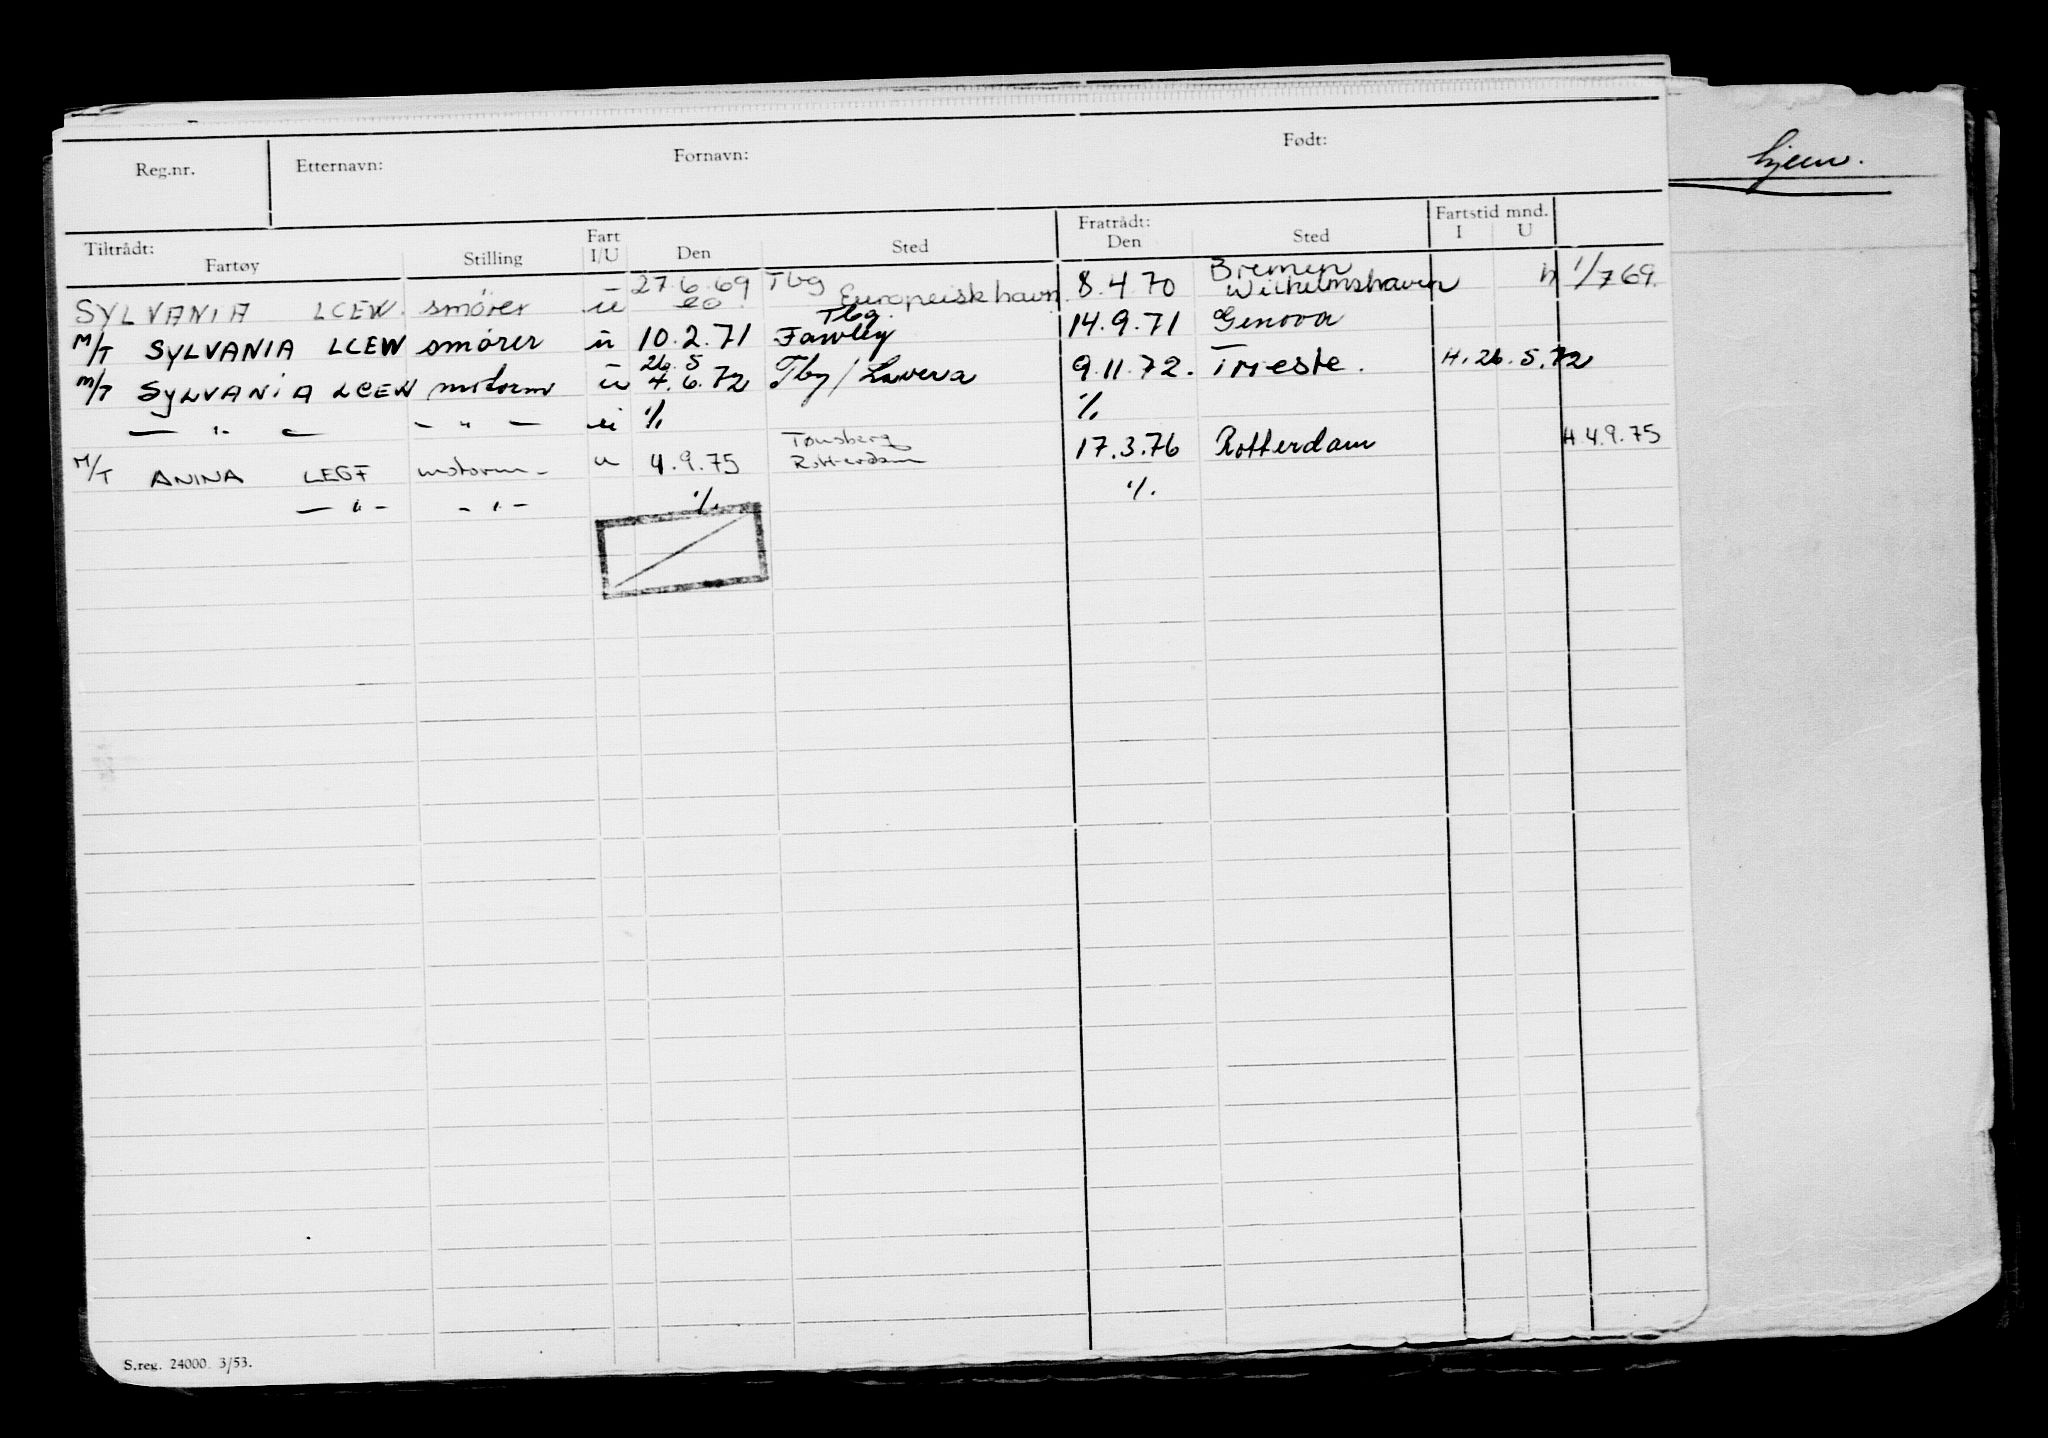 hjem.
Reg.nr. Etternavn: Fornavn: Født:
Tiltrådt: Fratrådt: Fartstid mnd.
Fartøy Stilling Fart I/U Den Sted Den Sted I U
27.6.69 Tbg Bremen
SYLVANIA LCEW. smører u Europeisk havn. 8.4.70 Wilhelmshaven h 1/7 69.
Tbg.
M/T SYLVANIA LCEW smører u 10.2.71 Fawley 14.9.71 Genova
26.5
M/T SYLVANIA LCEW motorm u 4.6.72 Tbg/Lavera 9.11.72. Trieste. H. 26.5.72
— " — — " — u ·/. ·/.
Tønsberg
M/T ANINA LEGF motorm- u 4.9.75 Rotterdam 17.3.76 Rotterdam H.4.9.75
— " — — " — ·/. ·/.
S.reg. 24000. 3/53.